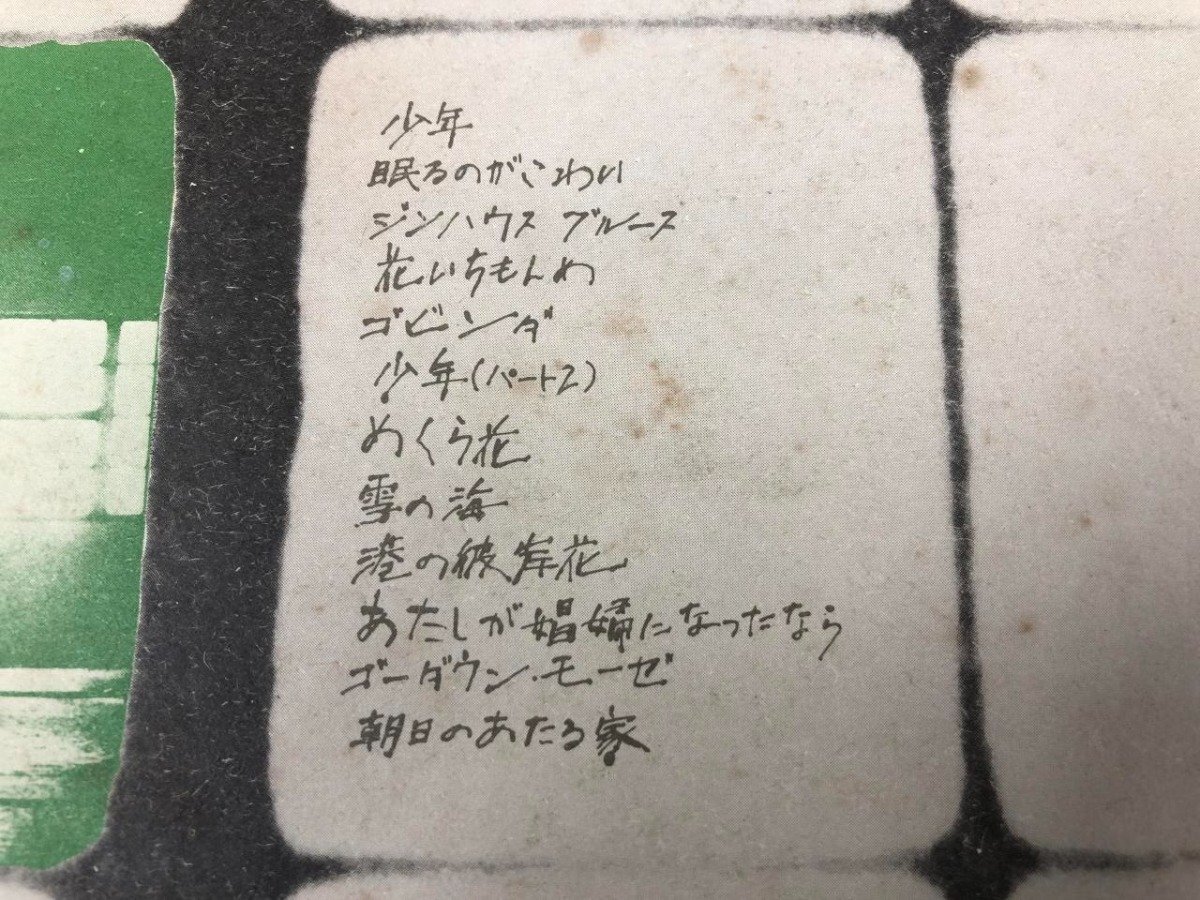 少年
眠るのがこわい
ジンハウス ブルース
花いちもんめ
ゴビンダ
少年(パート2)
めくら花
雪の海
港の彼岸花
あたしが娼婦になったなら
ゴーダウン・モーゼ
朝日のあたる家